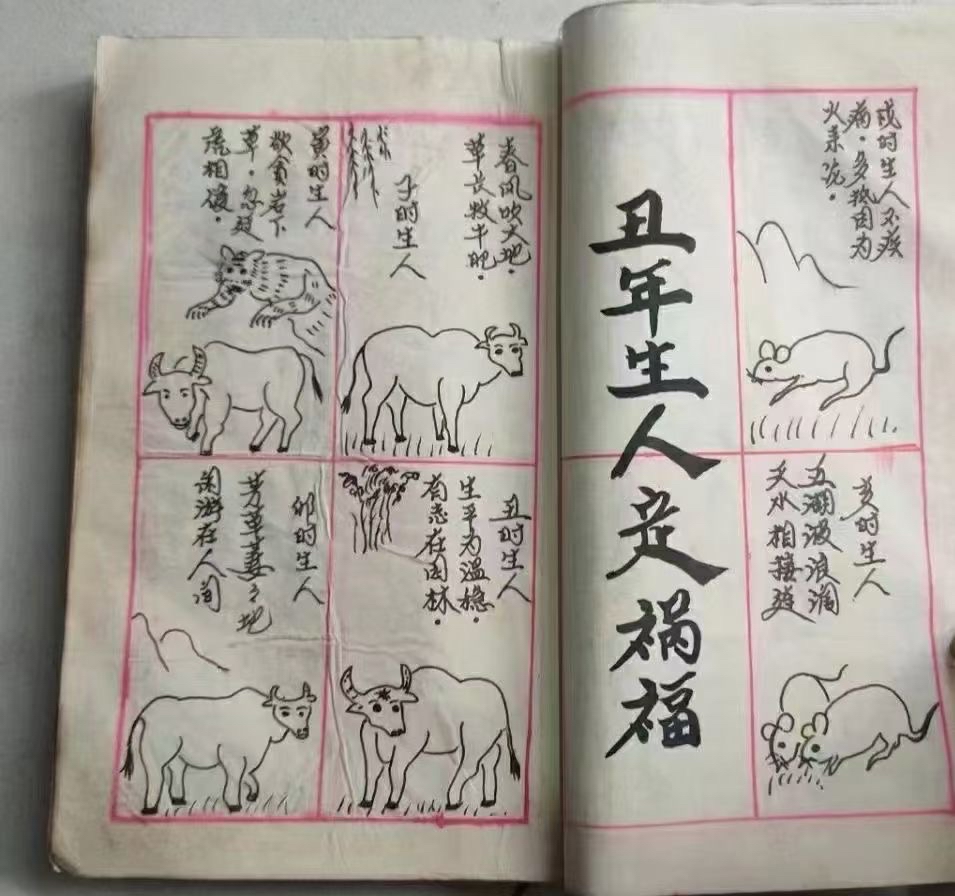 戌时生人不疾
病·多 因为
火来
亥时生人
五湖波浪
天水相接
丑年生人定祸福
春风吹大地·
草长牧牛肥·
子时生人
丑时生人
生平为温稳·
有志在园林·
寅时生人
欲食岩下
草·忽
虎相侵·
卯时生人
芳草萋々地
闲游在人间